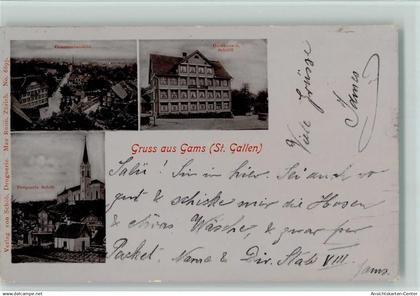 Gesammtansicht
Gasthaus z. Schäfli
Gruss aus Gams (St. Gallen)
Droguerie Schöb
Verlag von Schöb, Droguerie. Max Bunz, Zürich. No. 6895.
Viele Grüsse
James
Salü! Bin in hier. Sei auch so
gut & schicke mir die Hosen
& etwas Wäsche, & zwar per
Packet. Name & Div. Stab VIII.
James.
www.ansichtskarten-center.de
Ansichtskarten-Center